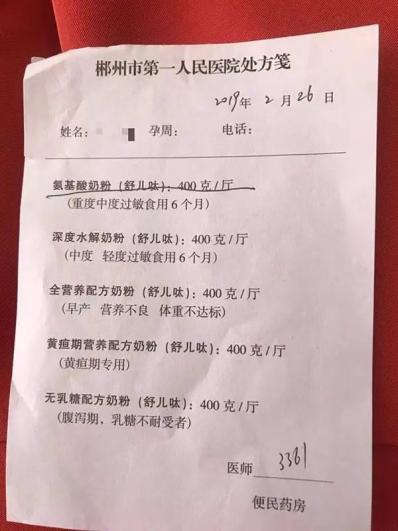 郴州市第一人民医院处方笺
2019年 2月 26日
姓名： 孕周： 电话：
氨基酸奶粉（舒儿呔）：400克/厅
（重度中度过敏食用6个月）
深度水解奶粉（舒儿呔）：400克/厅
（中度 轻度过敏食用6个月）
全营养配方奶粉（舒儿呔）：400克/厅
（早产 营养不良 体重不达标）
黄疸期营养配方奶粉（舒儿呔）：400克/厅
（黄疸期专用）
无乳糖配方奶粉（舒儿呔）：400克/厅
（腹泻期，乳糖不耐受者）
医师 3361
便民药房